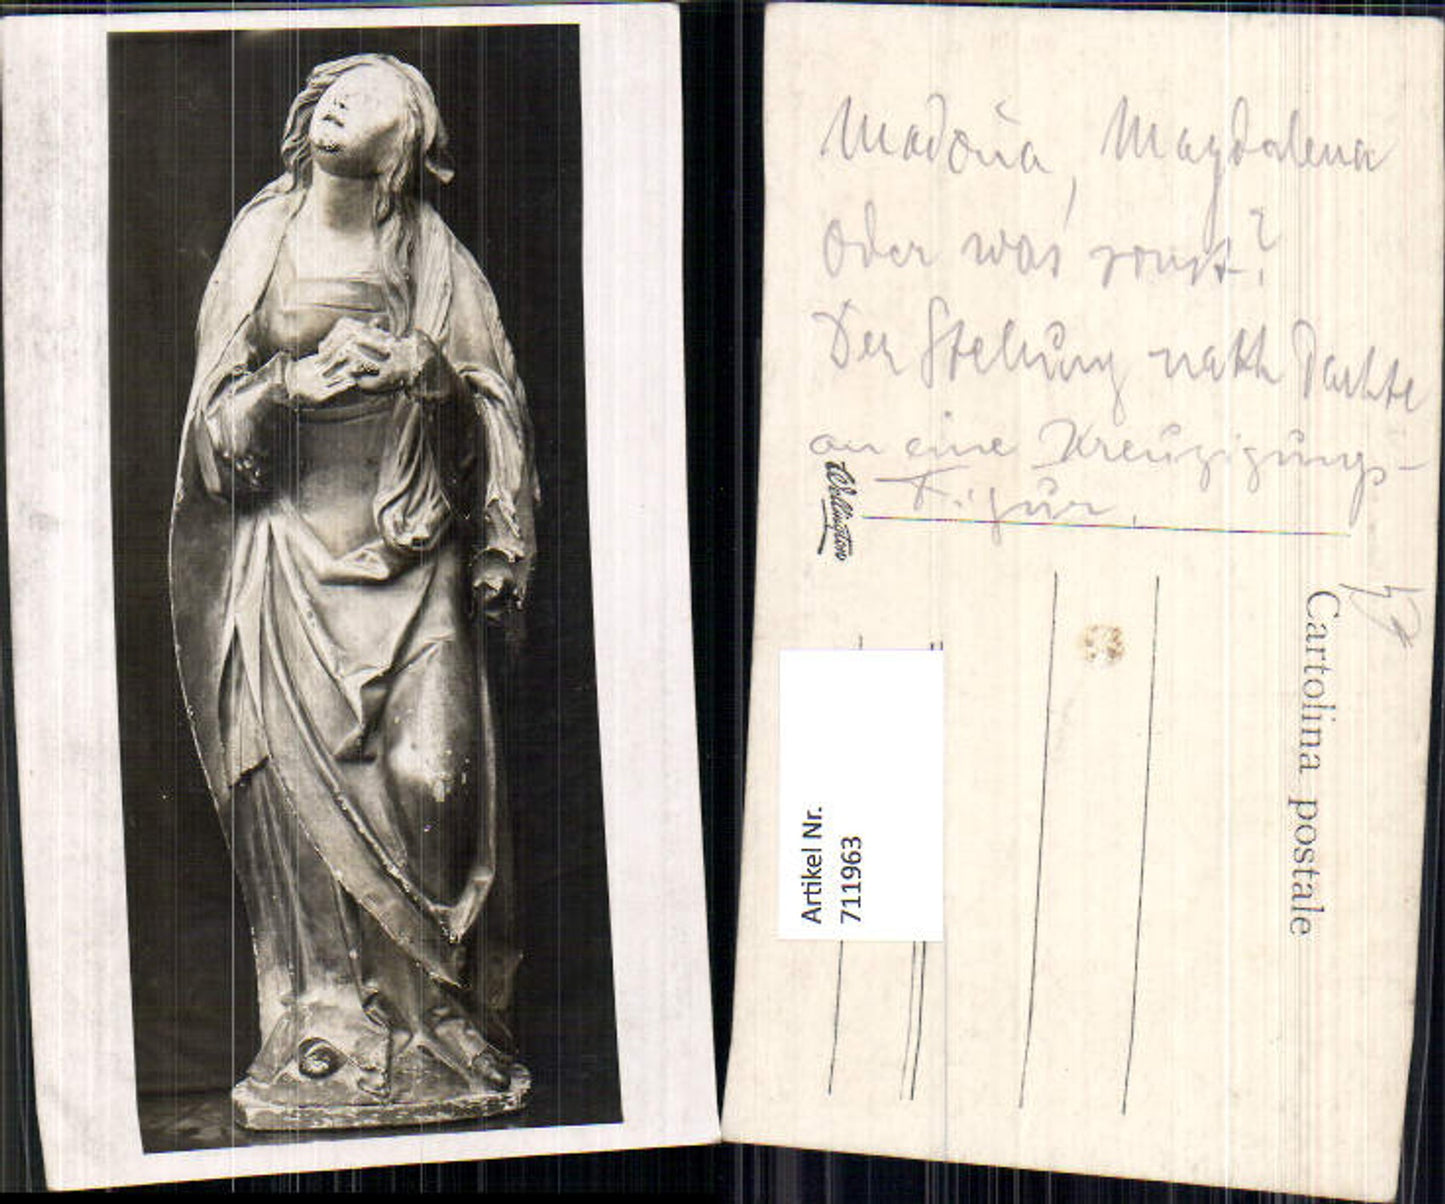 Madoña, Magdalena
oder was sonst?
Der Stellung nach dachte
an eine Kreuzigungs-
Figur.
Wellington
Cartolina postale
Artikel Nr.
711963